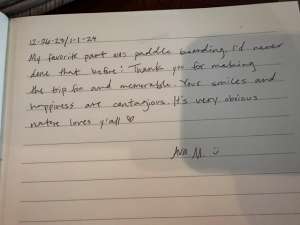 12-26-23/1-1-24
My favorite part was paddle boarding. I'd never
done that before! Thank you for making
the trip fun and memorable. Your smiles and
happiness are contagious. It's very obvious
nature loves y'all ♡
Ava M. :)